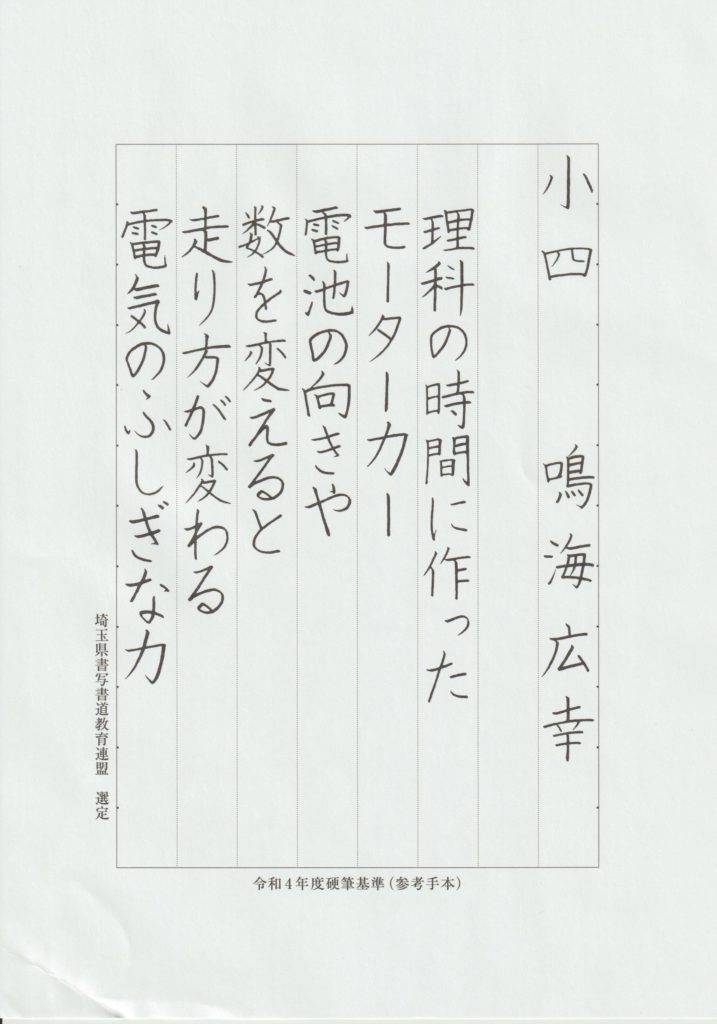 小四　鳴海広幸
理科の時間に作った
モーターカー
電池の向きや
数を変えると
走り方が変わる
電気のふしぎな力
埼玉県書写書道教育連盟　選定
令和4年度硬筆基準（参考手本）